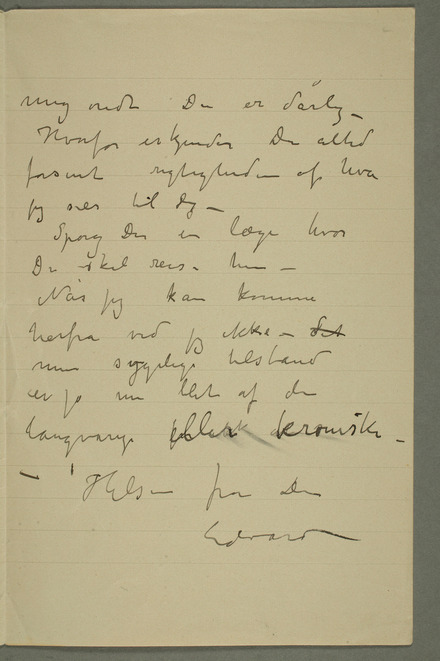 mig ondt Du er dårlig –
Hvorfor erkjender Du altid
forsent rigtigheden af hva
jeg sier til dig –
Spørg Du en læge hvor
Du skal reise hen –
Når jeg kan komme
herfra ved jeg ikke – det
min sygelige tilstand
er jo nu ble͏t af de
langvarige kroniske –
– Hilsen fra Din
Edvard